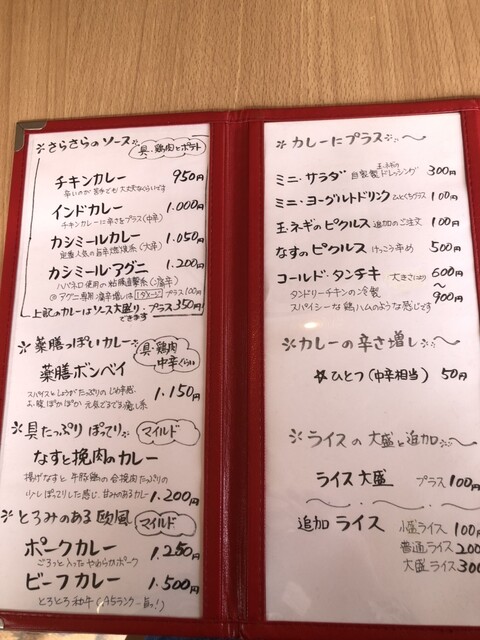 ※さらさらのソース※
具・鶏肉とポテト
チキンカレー 950円
辛いのが苦手でも大丈夫なくらいです
インドカレー 1.000円
チキンカレーに辛さをプラス(中辛)
カシミールカレー 1.050円
定番人気の旨辛燃焼系(大辛)
カシミール・アグニ 1.200円
ハバネロ使用の粘膜直撃系(激辛)
上記のカレーはソース大盛り・プラス350円
できます
※薬膳っぽいカレー
具・鶏肉
中辛ぐらい
薬膳ボンベイ 1.150円
スパイスとしょうがたっぷりの
お腹ぽかぽか 元気でるでる癒し系
※具たっぷり ぽってり※ マイルド
なすと挽肉のカレー
揚げなすと 牛豚鶏の合挽肉たっぷりの
少しぽってりした感じ、甘みのあるカレー 1.200円
※とろみのある 欧風 マイルド
ポークカレー 1.250円
ごろっと入ったやわらかポーク
ビーフカレー 1.500円
とろとろ和牛(A5ランク
※カレーにプラス※〜
ミニ・サラダ 自家製ドレッシング 300円
ミニ・ヨーグルトドリンク ひとくちグラス 100円
玉ネギのピクルス 追加のご注文 100円
なすのピクルス けっこう辛め 500円
コールド・タンドリーチキン 大きさにより 600円
〜
900円
タンドリーチキンの冷製
スパイシーな鶏ハムのような感じです
※カレーの辛さ増し※〜
☆ひとつ(中辛相当) 50円
※ライスの大盛と追加※〜
ライス大盛 プラス100円
追加ライス 小盛ライス 100円
普通ライス 200
大盛ライス 300